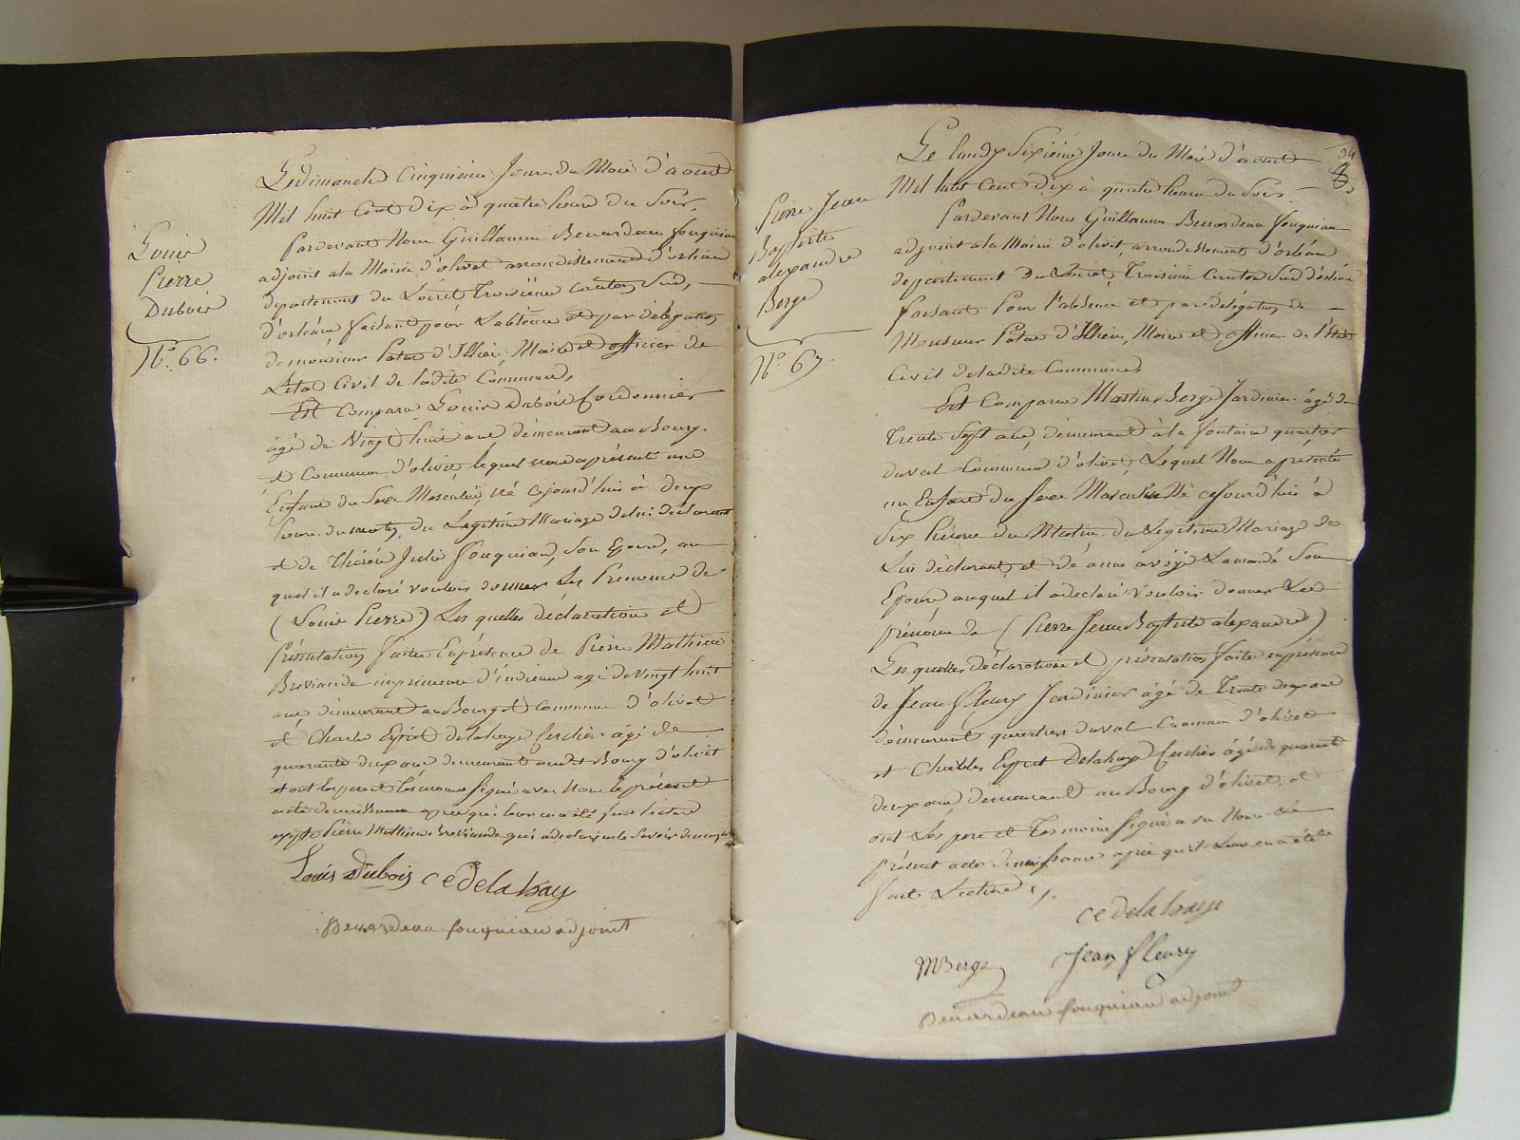 Louis
Pierre
Dubois
N.o 66.
Le dimanche Cinquième Jour du Mois d'aout
Mil huit Cent Dix à quatre heure du Soir.
Pardevant Nous Guillaume Benardeau fouqueau
adjoint a la Mairie d'olivet arrondissement d'orléan
departement du Loiret Troisième canton Sud,
d'orléan faisant pour L'absence et par délégation
de monsieur Patas d'Illiers, Maire et officier de
L'état Civil de ladite Commune,
Est Comparu Louis Dubois Cordonnier
âgé de Vingt huit ans demeurant au Bourg
et Commune d'olivet lequel nous a présenté un
Enfant du Sexe Masculin né cejourd'hui à deux
heure du matin, du Légitime Mariage de lui declarant
et de Thérèse Julie fouqueau, Son Epouse, au
quel il a declaré vouloir donner Les Prenoms de
(Louis Pierre) Les quelles déclaration et
Présentation faites En présence de Pierre Mathieu
Breviande imprimeur d'indienne agé de vingt huit
ans demeurant au Bourg et Commune d'olivet
et Charles Esprit delahaye percher agé de
quarante deux ans demeurant audit Bourg d'olivet
et ont les pere et temoins signé avec Nous le présent
acte de naissance après qui leur en a été fait lecture
excepté Pierre Mathieu breviande qui a declaré ne le Savoir de ce enquis
Louis Dubois ce Delahay
Benardeau fouqueau adjoint
94
8
Pierre Jean
Baptiste
alexandre
Berge
N.o 67.
Le lundy Sixième Jour du Mois d'aout
Mil huit Cent Dix à quatre heure du Soir.
Pardevant Nous Guillaume Benardeau fouqueau
adjoint a la Mairie d'olivet, arrondissement d'orléan
departement du Loiret, Troisieme Canton Sud d'orléan
faisant Pour l'absence et par delegation de
Monsieur Patas d'Illiers, Maire et officier de l'état
Civil de ladite Commune
Est Comparu Martin Berge Jardinier âgé de
Trente Sept ans, demeurant à la fontaine quartier
du val Commune d'olivet, Lequel Nous a présenté
un Enfant du Sexe Masculin Né cejourd'hui à
Six heure du Matin du Légitime Mariage de
Lui déclarant et de anne Son
Epouse auquel il a declaré vouloir donner Les
prénoms de (Pierre Jean Baptiste alexandre)
Les quelles déclaration et présentation faite en présence
de Jean fleury Jardinier âgé de Trente deux ans
demeurant quartier du val Commune d'olivet
et Charles Esprit Delahaye percher âgé de quarante
deux ans, demeurant au Bourg d'olivet, et
ont Les pere et Temoins signé avec Nous le
présent acte de naissance après qu'il Leur en a été
fait Lecture ./.
ce delahaye
MBerge Jean fleury
Benardeau fouqueau adjoint